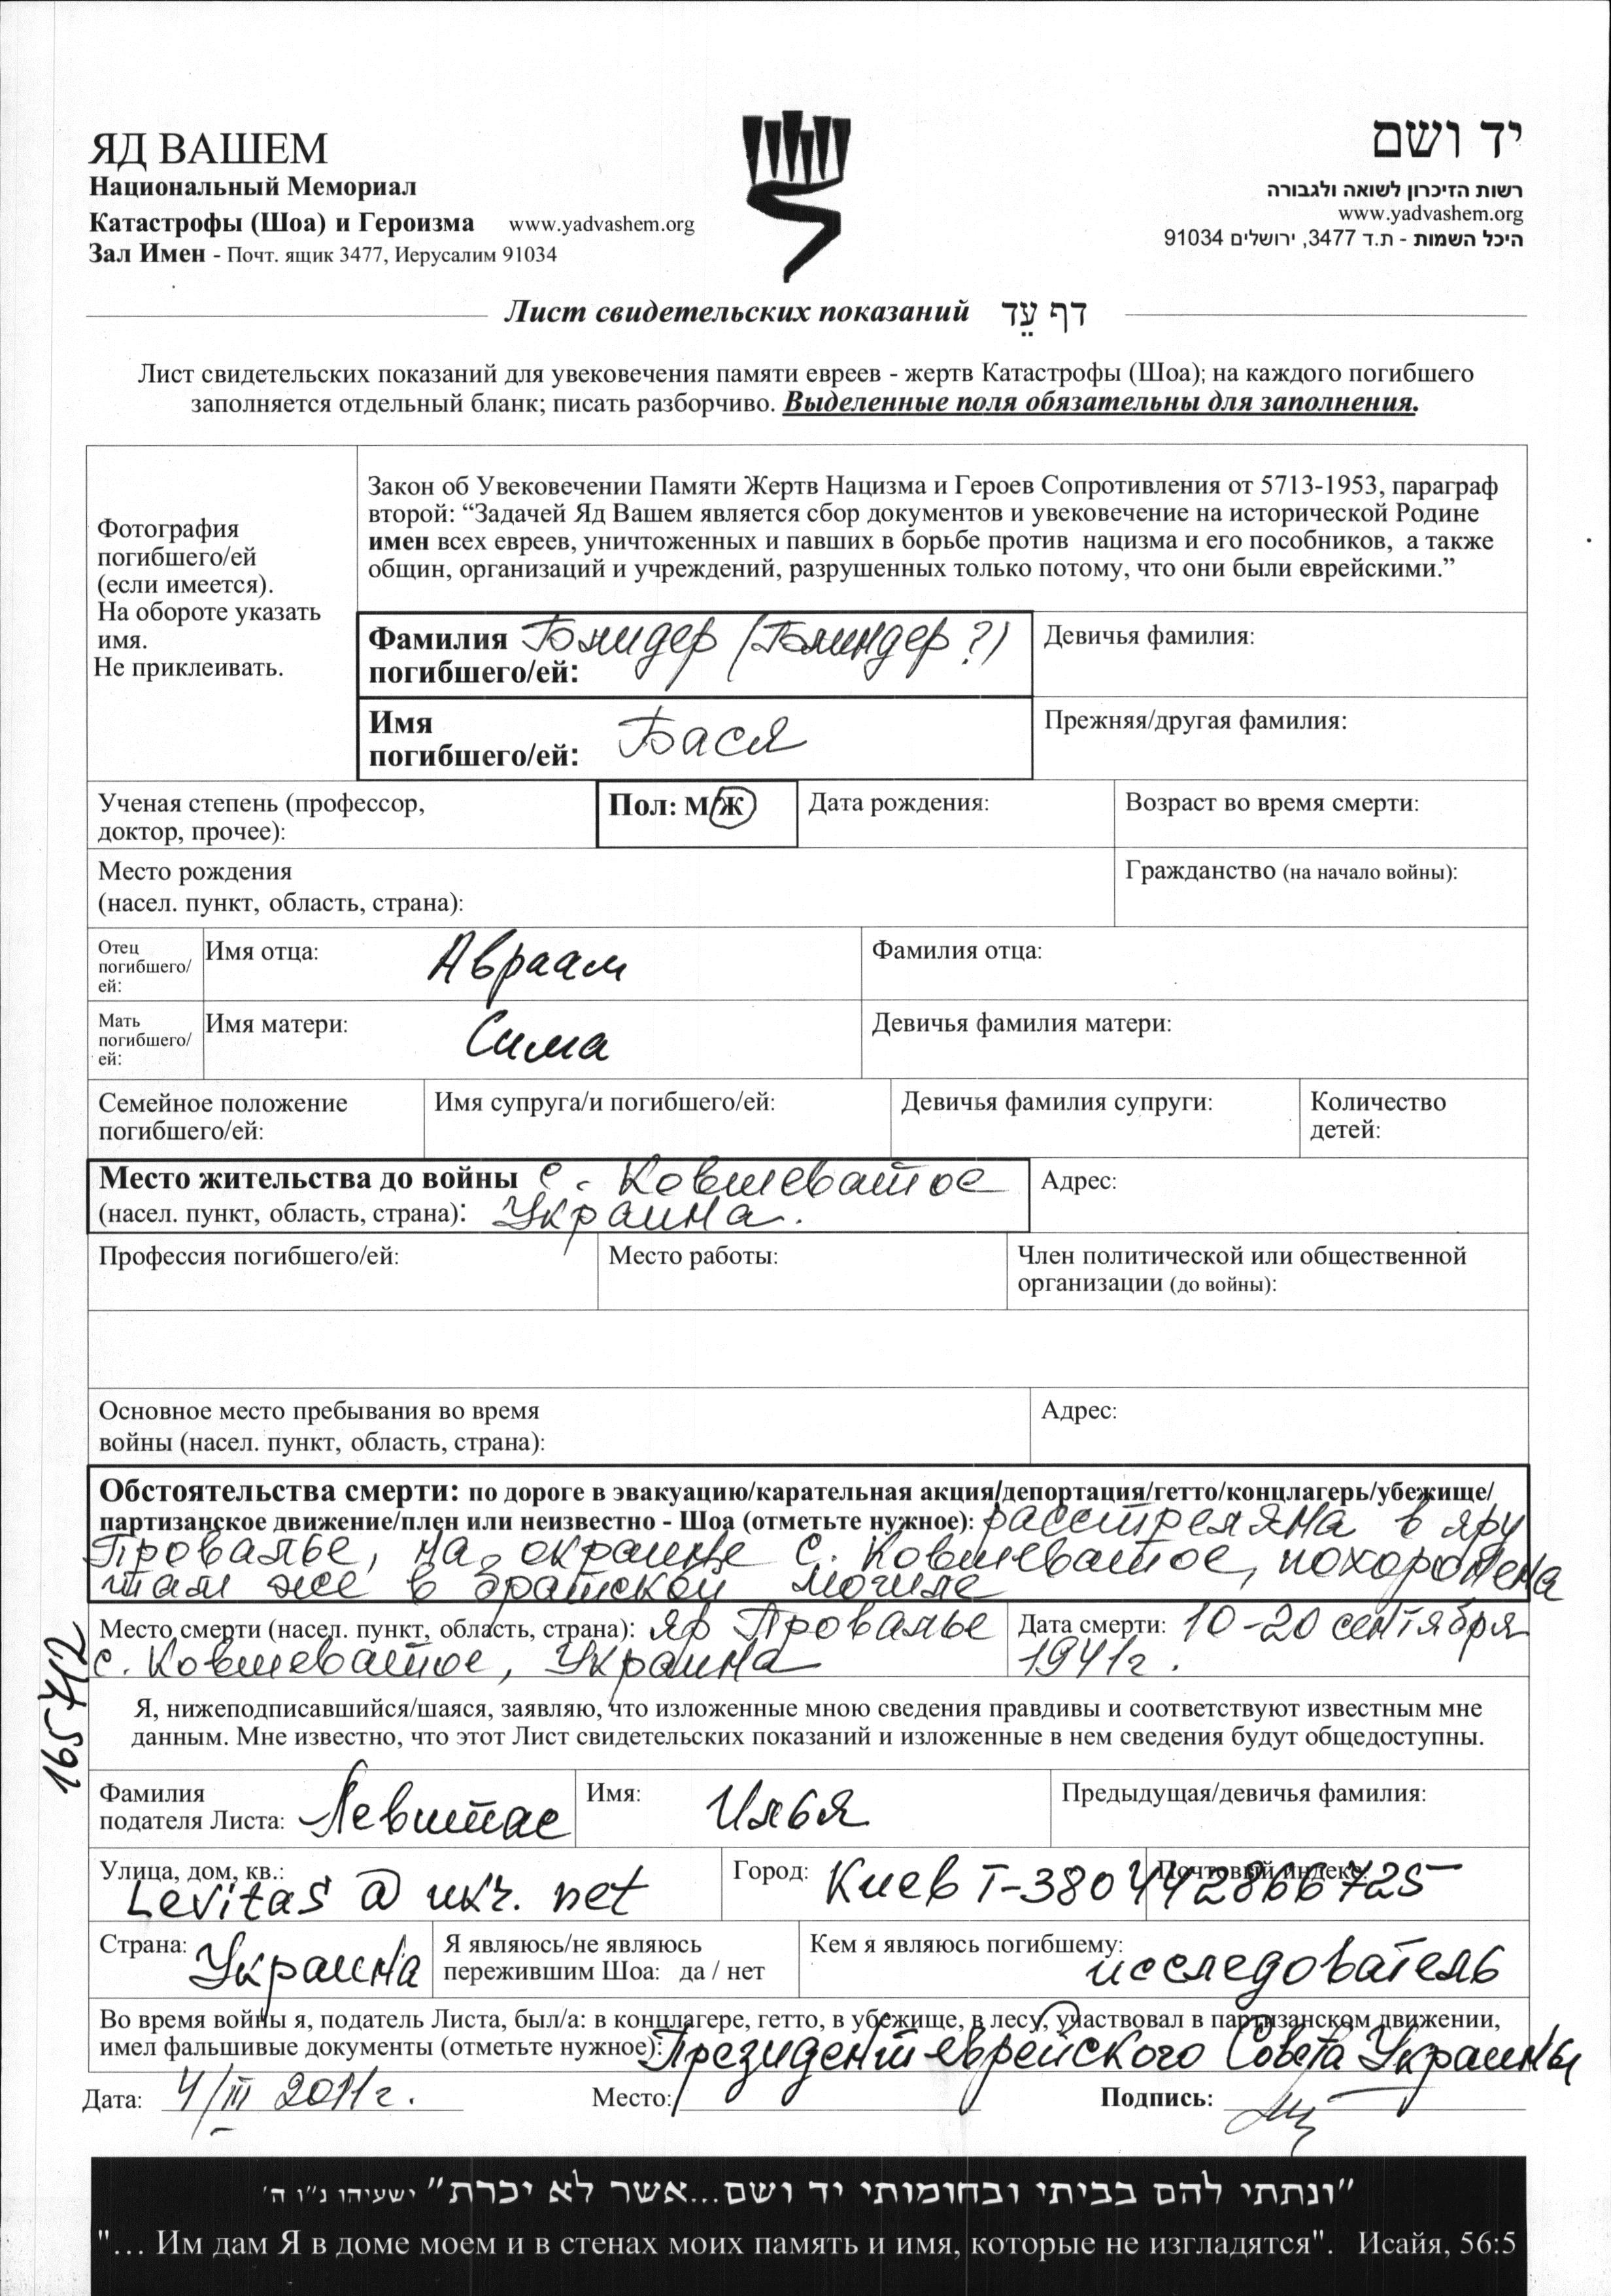 ЯД ВАШЕМ
Национальный Мемориал
Катастрофы (Шоа) и Героизма www.yadvashem.org
Зал Имен - Почт. ящик 3477, Иерусалим 91034
יד ושם
רשות הזיכרון לשואה ולגבורה
www.yadvashem.org
היכל השמות - ת.ד 3477, ירושלים 91034
Лист свидетельских показаний דף עֵד
Лист свидетельских показаний для увековечения памяти евреев - жертв Катастрофы (Шоа); на каждого погибшего
заполняется отдельный бланк; писать разборчиво. Выделенные поля обязательны для заполнения.
Фотография
погибшего/ей
(если имеется).
На обороте указать
имя.
Не приклеивать.
Закон об Увековечении Памяти Жертв Нацизма и Героев Сопротивления от 5713-1953, параграф
второй: “Задачей Яд Вашем является сбор документов и увековечение на исторической Родине
имен всех евреев, уничтоженных и павших в борьбе против нацизма и его пособников, а также
общин, организаций и учреждений, разрушенных только потому, что они были еврейскими.”
Фамилия
погибшего/ей: Блидер (Блиндер?)
Девичья фамилия:
Имя
погибшего/ей: Бася
Прежняя/другая фамилия:
Ученая степень (профессор,
доктор, прочее):
Пол: М/Ж
Дата рождения:
Возраст во время смерти:
Место рождения
(насел. пункт, область, страна):
Гражданство (на начало войны):
Отец
погибшего/
ей:
Имя отца: Авраам
Фамилия отца:
Мать
погибшего/
ей:
Имя матери: Сима
Девичья фамилия матери:
Семейное положение
погибшего/ей:
Имя супруга/и погибшего/ей:
Девичья фамилия супруги:
Количество
детей:
Место жительства до войны с. Ковшеватое
(насел. пункт, область, страна): Украина.
Адрес:
Профессия погибшего/ей:
Место работы:
Член политической или общественной
организации (до войны):
Основное место пребывания во время
войны (насел. пункт, область, страна):
Адрес:
Обстоятельства смерти: по дороге в эвакуацию/карательная акция/депортация/гетто/концлагерь/убежище/
партизанское движение/плен или неизвестно - Шоа (отметьте нужное): расстреляна в яру
Провалье, на окраине с. Ковшеватое, похоронена
там же в братской могиле
Место смерти (насел. пункт, область, страна): яр Провалье
с. Ковшеватое, Украина
Дата смерти: 10-20 сентября
1941г.
165712
Я, нижеподписавшийся/шаяся, заявляю, что изложенные мною сведения правдивы и соответствуют известным мне
данным. Мне известно, что этот Лист свидетельских показаний и изложенные в нем сведения будут общедоступны.
Фамилия
подателя Листа: Левитас
Имя: Илья
Предыдущая/девичья фамилия:
Улица, дом, кв.:
Levitas @ ukr. net
Город: Киев Т-380442866725
Почтовый индекс:
Страна: Украина
Я являюсь/не являюсь
пережившим Шоа: да / нет
Кем я являюсь погибшему:
исследователь
Во время войны я, податель Листа, был/а: в концлагере, гетто, в убежище, в лесу, участвовал в партизанском движении,
имел фальшивые документы (отметьте нужное): Президент еврейского Совета Украины
Дата: 4/III 2011г.
Место:
Подпись:
"ונתתי להם בביתי ובחומותי יד ושם...אשר לא יכרת" ישעיהו נ"ו ה'
"... Им дам Я в доме моем и в стенах моих память и имя, которые не изгладятся". Исайя, 56:5